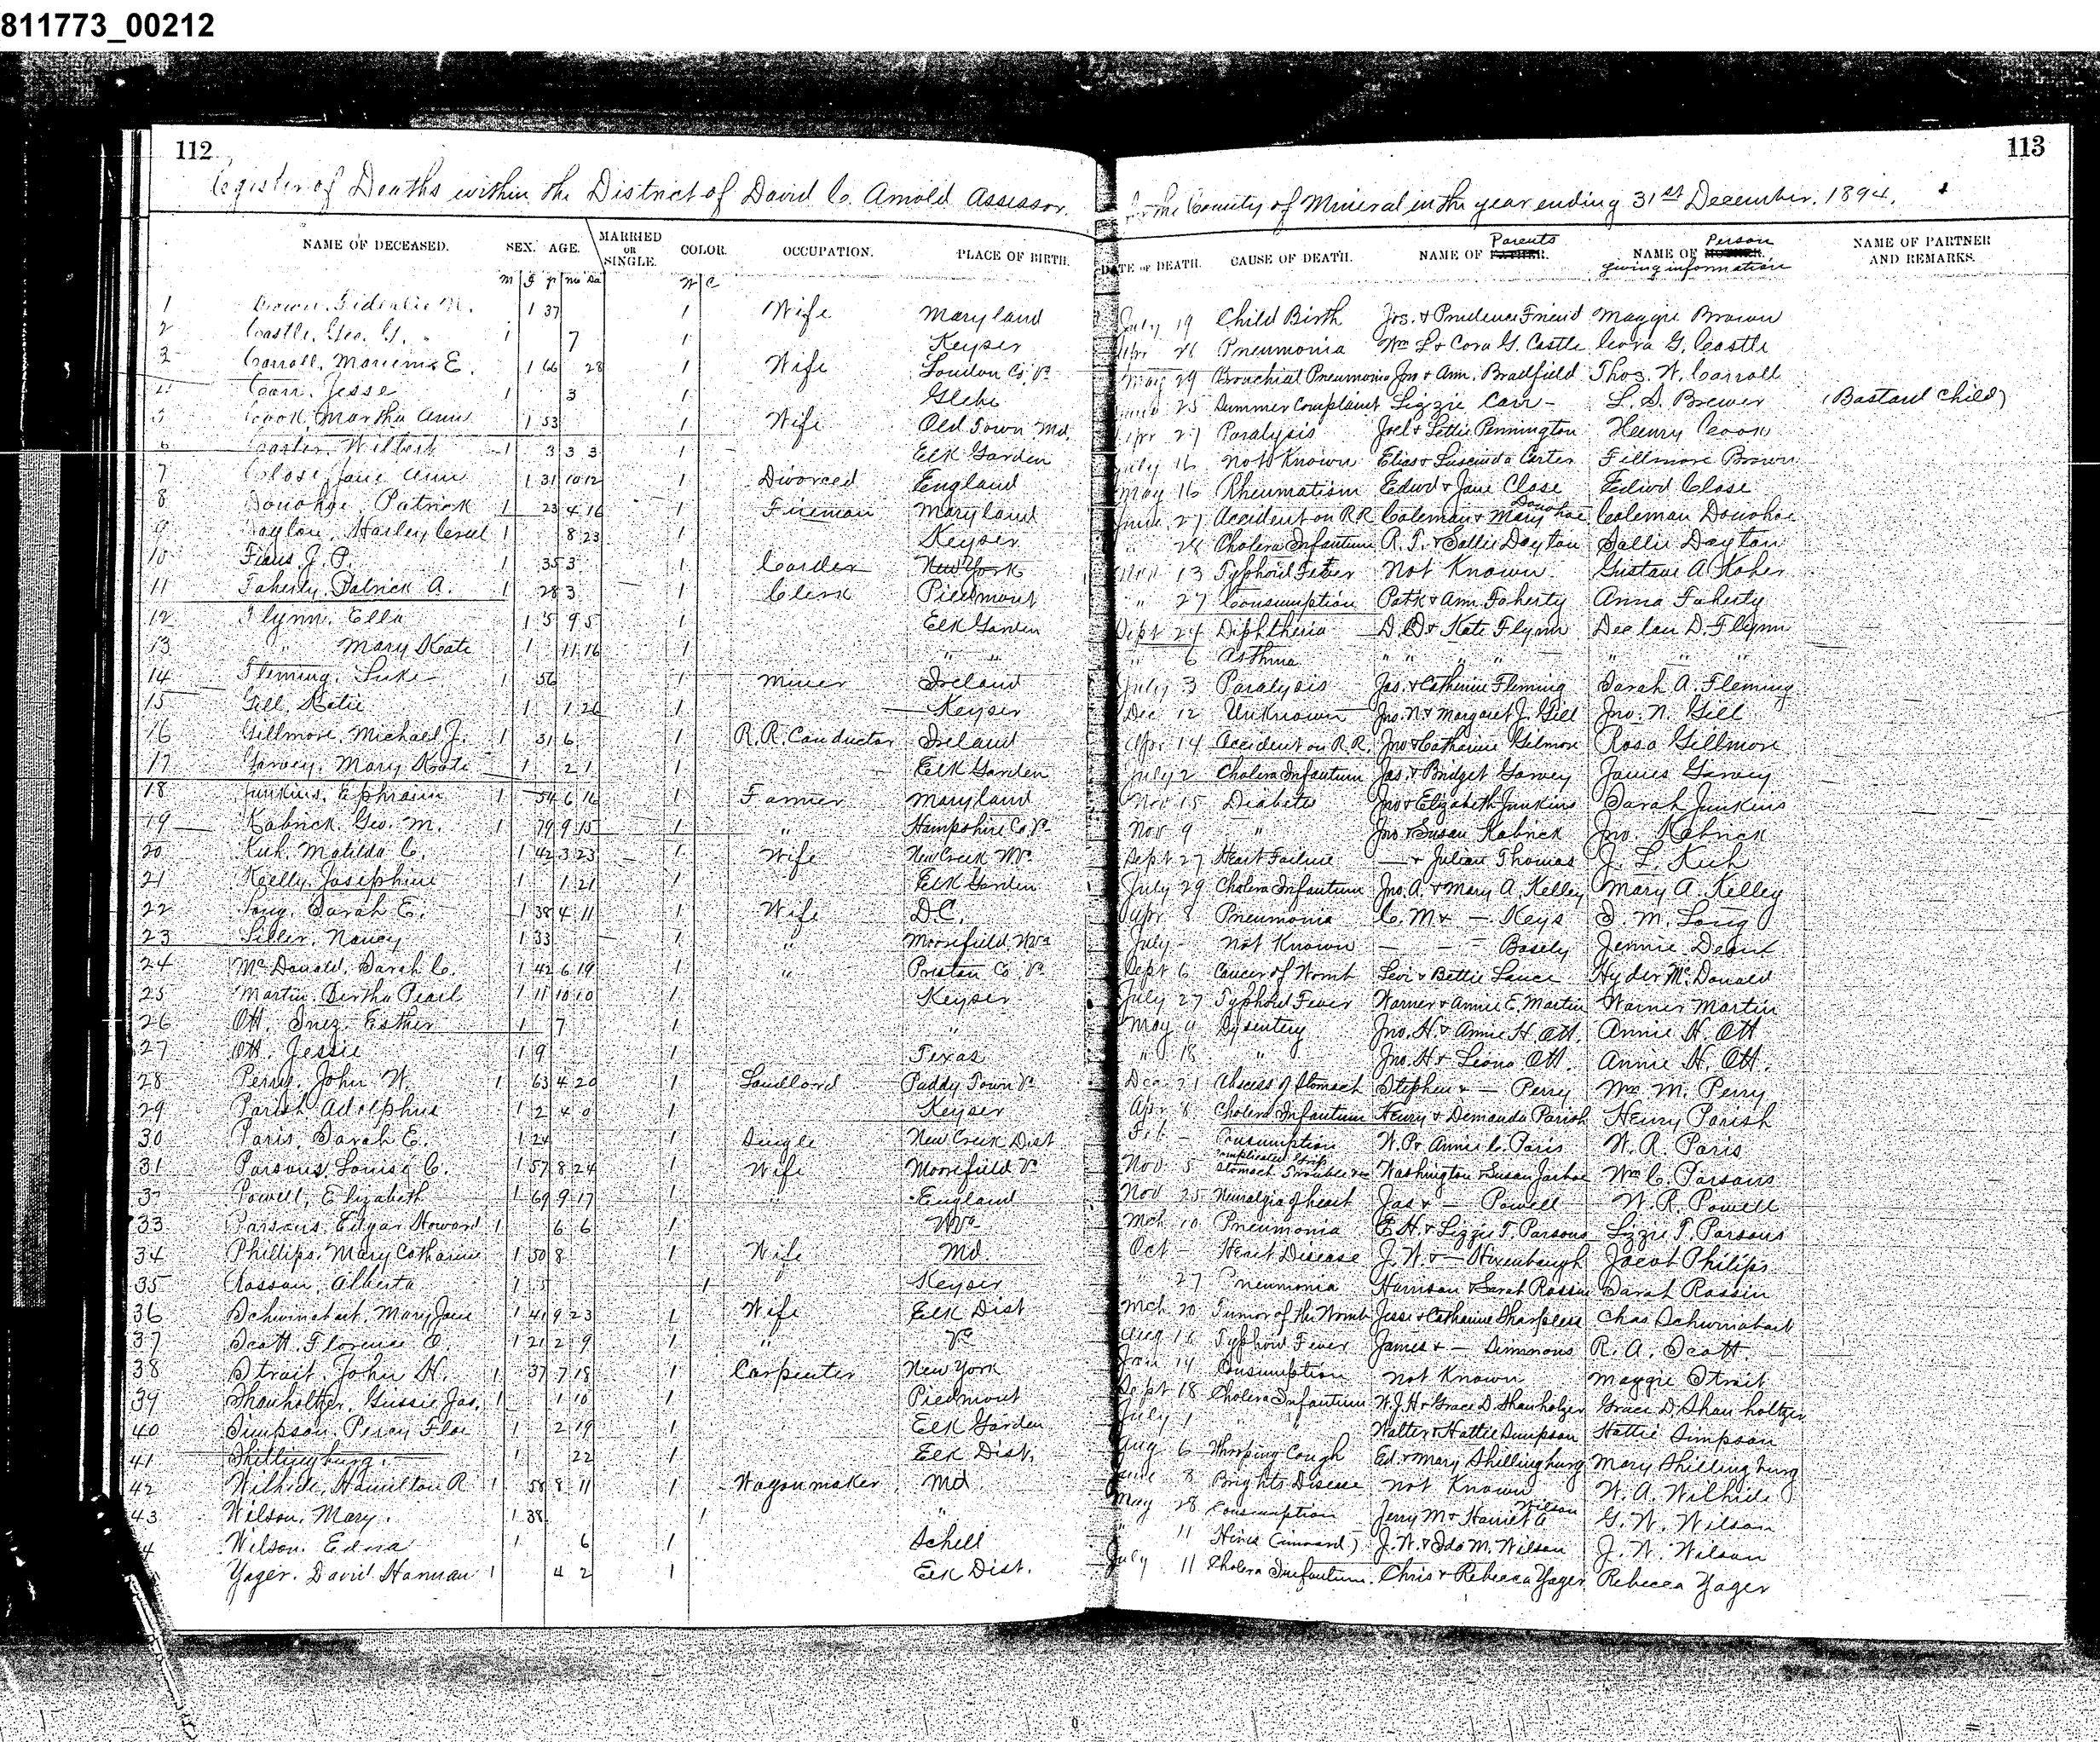 811773_00212
112
113
Register of Deaths within the District of David C. Arnold Assessor. in the County of Mineral in the year ending 31st December, 1894.
NAME OF DECEASED. SEX. AGE. MARRIED OR SINGLE. COLOR. OCCUPATION. PLACE OF BIRTH. DATE OF DEATH. CAUSE OF DEATH. NAME OF Parents NAME OF Person giving information NAME OF PARTNER AND REMARKS.
M F Y Mo Da W C
1 Brown, M. 1 37 1 Wife Maryland July 19 Child Birth Jos. & Prudence Friend Maggie Brown
2 Castle, Geo. G. 1 7 1 Keyser Apr 26 Pneumonia Wm L & Cora G. Castle Cora G. Castle
3 Carroll, E. 1 66 28 1 Wife Loudon Co. Va May 29 Bronchial Pneumonia Jon & Ann. Bradfield Thos. W. Carroll
4 Carr, Jesse 1 3 1 Glebe 25 Summer Complaint Lizzie Carr - L. S. Brewer (Bastard Child)
5 Cook, Martha Ann 1 53 1 Wife Old Town Md. Apr 27 Paralysis Joel & Lettie Pennington Henry Cook
6 Carter, Wilbert 1 3 3 3 1 Elk Garden July 16 Not Known Elias & Luscinda Carter Fillmore Brown
7 Close, Jane Ann 1 31 10 12 1 Divorced England May 16 Rheumatism Edwd & Jane Close Edwd Close
8 Donohoe, Patrick 1 23 4 16 1 Fireman Maryland June 27 Accident on R.R. Coleman & Mary Donohoe Coleman Donohoe
9 Dayton, Harley 1 8 23 1 Keyser " 28 Cholera Infantum R. T. & Sallie Dayton Sallie Dayton
10 J. P. 1 35 3 1 Carder New York Nov 13 Typhoid Fever Not Known Gustave A Koher
11 Faherty, Patrick A. 1 28 3 1 Clerk Piedmont " 27 Consumption Patk & Ann Faherty Anna Faherty
12 Flynn, Ella 1 5 9 5 Elk Garden Sept 24 Diphtheria D. D. & Kate Flynn Declan D. Flynn
13 " Mary Kate 1 11 16 1 " " " 6 Asthma " " " " " " "
14 Fleming, Luke 1 56 1 Miner Ireland July 3 Paralysis Jas. & Catherine Fleming Sarah A. Fleming
15 Gill, Katie 1 1 26 1 Keyser Dec 12 Unknown Jno. N & Margaret J. Gill Jno. N. Gill
16 Gillmore, Michael J. 1 31 6 1 R.R. Conductor Ireland Apr 14 Accident on R.R. Jno & Catharine Gilmore Rosa Gillmore
17 Garvey, Mary Kate 1 2 1 1 Elk Garden July 2 Cholera Infantum Jas. & Bridget Garvey James Garvey
18 Junkins, Ephraim 1 54 6 16 1 Farmer Maryland Nov 15 Diabetes Jno & Elizabeth Junkins Sarah Junkins
19 Kabrick, Geo. M. 1 79 9 15 1 " Hampshire Co. Va Nov 9 " Jno & Susan Kabrick Jno. Kabrick
20 Kuh, Matilda C. 1 42 3 23 1 Wife New Creek W Va Sept 27 Heart Failure — & Julian Thomas J. L. Kuh
21 Kelly, Josephine 1 1 21 1 Elk Garden July 29 Cholera Infantum Jno. A. & Mary A. Kelley Mary A. Kelley
22 Long, Sarah E. 1 38 4 11 1 Wife D.C. Apr 8 Pneumonia C. M & — Keys S. M. Long
23 Siller, Nancy 1 33 1 " Moorefield W Va July - Not Known — — Basely Jennie Dean
24 McDonald, Sarah C. 1 42 6 19 1 " Preston Co Va Sept 6 Cancer of Womb Levi & Bettie Lance Hyder McDonald
25 Martin, Bertha Pearl 1 11 10 10 1 Keyser July 27 Typhoid Fever Warner & Annie E. Martin Warner Martin
26 Ott, Inez Esther 1 7 1 " May 9 Dysentery Jno. H & Annie H. Ott. Annie H. Ott
27 Ott, Jessie 1 9 1 Texas " 18 " Jno. H & Leona Ott. Annie H. Ott.
28 Perry, John W. 1 63 4 20 1 Landlord Paddy Town Va Dec 21 Abscess of Stomach Stephen & — Perry Wm M. Perry
29 Parish Adolphus 1 2 4 0 1 Keyser Apr 8 Cholera Infantum Henry & Demanda Parish Henry Parish
30 Paris, Sarah E. 1 24 1 Single New Creek Dist Feb - Consumption W. P & Annie C. Paris W. R. Paris
31 Parsons Louise C. 1 57 8 24 1 Wife Moorefield Va Nov 5 Complicated Grip, Stomach Trouble &c Washington & Susan Jarboe Wm C. Parsons
32 Powell, Elizabeth 1 69 9 17 1 " England Nov 25 Neuralgia of heart Jas & — Powell W. R. Powell
33 Parsons, Edgar Howard 1 6 6 1 W Va Mch 10 Pneumonia E. H. & Lizzie T. Parsons Lizzie T. Parsons
34 Phillips, Mary Catharine 1 50 8 1 Wife Md. Oct - Heart Disease J. W. & — Hixenbaugh Jacob Philips
35 Rassan, Alberta 1 5 1 Keyser " 27 Pneumonia Harrison & Sarah Rassin Sarah Rassin
36 Schwinabart, Mary Jane 1 41 9 23 1 Wife Elk Dist Mch 20 Tumor of the Womb Jesse & Catharine Sharpless Chas Schwinabart
37 Scott, Florence O. 1 21 2 9 1 " Va Aug 16 Typhoid Fever James & — Simmons R. A. Scott
38 Strait, John H. 1 37 7 18 1 Carpenter New York Jan 14 Consumption Not Known Maggie Strait
39 Shanholtzer, Gussie Jas. 1 1 10 1 Piedmont Sept 18 Cholera Infantum W. J. H & Grace D. Shanholtzer Grace D. Shanholtzer
40 Simpson, Percy Floe 1 2 19 1 Elk Garden July 1 " " Walter & Hattie Simpson Hattie Simpson
41 Shillingburg, — 1 22 1 Elk Dist. Aug 6 Whooping Cough Ed. & Mary Shillingburg Mary Shillingburg
42 Wilhide, Hamilton R 1 58 8 11 1 Wagonmaker Md. June 8 Brights Disease Not Known W. A. Wilhide
43 Wilson, Mary. 1 38 1 " May 28 Consumption Jerry M & Harriet A Wilson G. W. Wilson
4 Wilson, Edna 1 6 1 Schell " 11 Hives (inward) J. W. & Ida M. Wilson J. W. Wilson
Yager, David Harman 1 4 2 1 Elk Dist. July 11 Cholera Infantum. Chris & Rebecca Yager Rebecca Yager